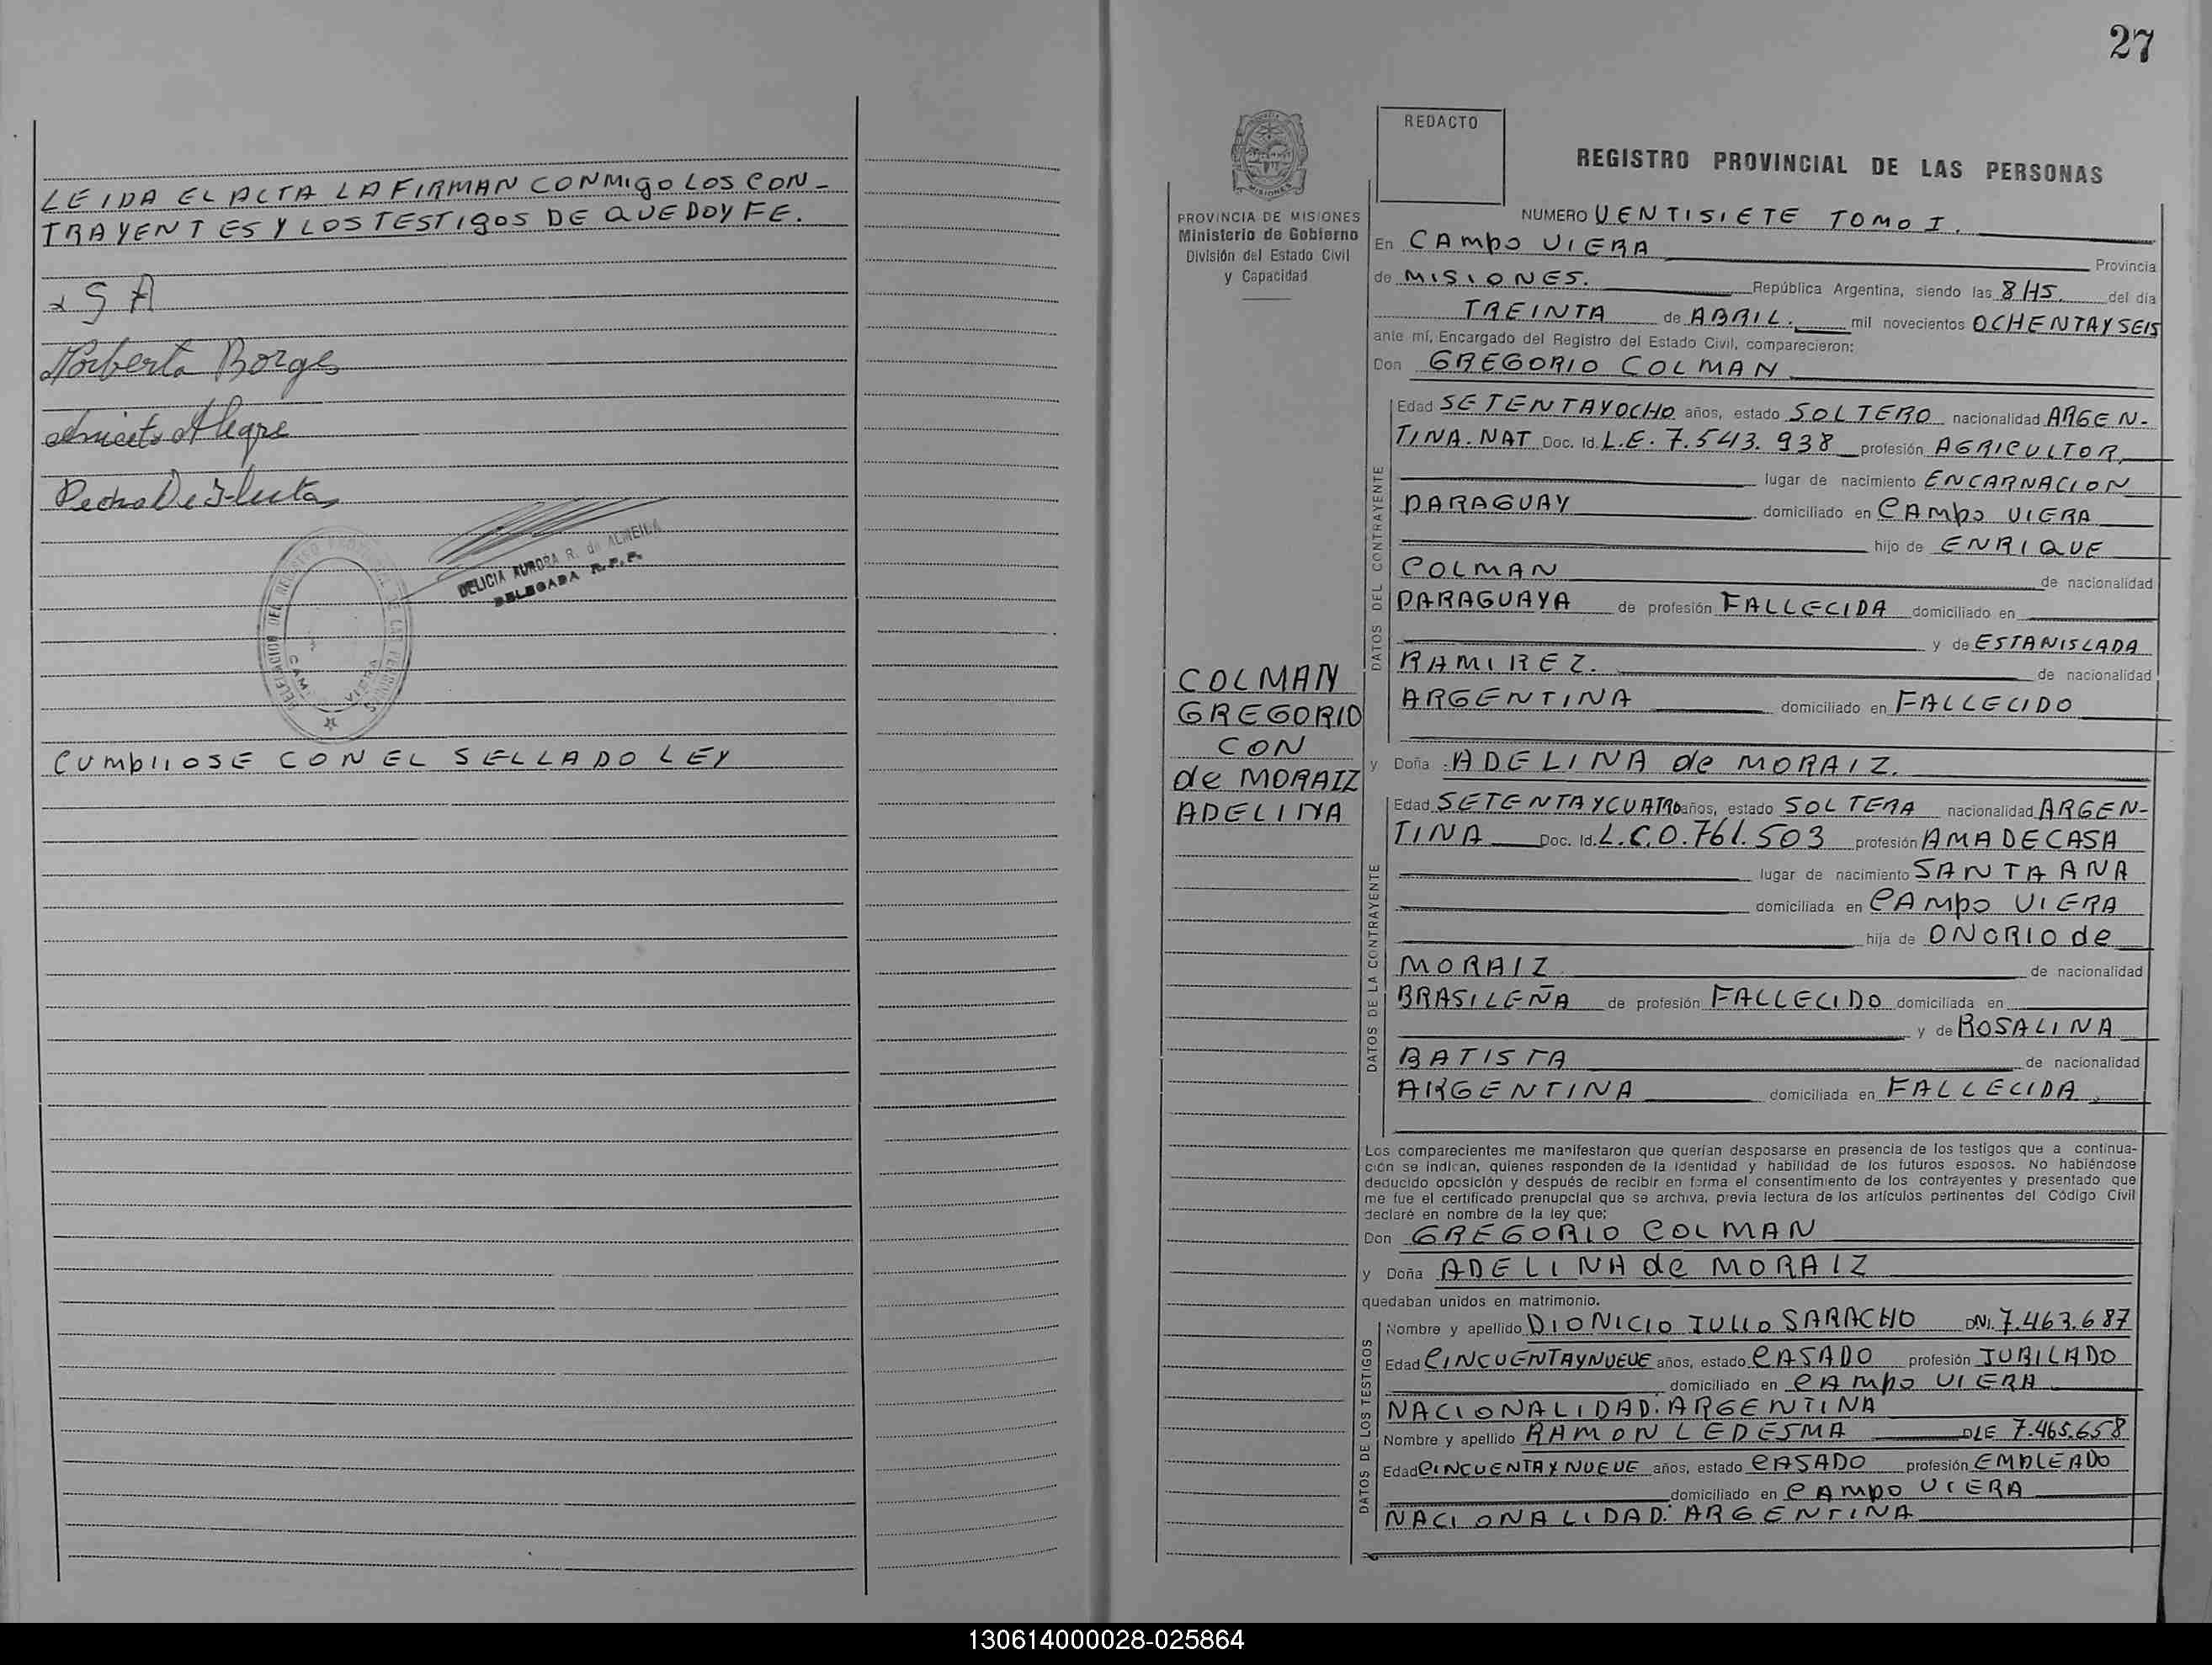 LEIDA EL ACTA LA FIRMAN CONMIGO LOS CON-
TRAYENTES Y LOS TESTIGOS DE QUE DOY FE.
Norberta Borges
Alegre
Pedro De
DELICIA AURORA R. de ALMEILA
DELEGADA R.P.P.
CUMPLIOSE CON EL SELLADO LEY
27
PROVINCIA DE MISIONES
Ministerio de Gobierno
División del Estado Civil
y Capacidad
COLMAN
GREGORIO
CON
de MORAIZ
ADELINA
REDACTO
REGISTRO PROVINCIAL DE LAS PERSONAS
NUMERO VENTISIETE TOMO I.
En CAMPO VIERA Provincia
de MISIONES. República Argentina, siendo las 8 HS. del día
TREINTA de ABRIL. mil novecientos OCHENTAYSEIS
ante mí, Encargado del Registro del Estado Civil, comparecieron:
Don GREGORIO COLMAN
DATOS DEL CONTRAYENTE
Edad SETENTAYOCHO años, estado SOLTERO nacionalidad ARGEN-
TINA. NAT Doc. Id. L.E. 7.543.938 profesión AGRICULTOR,
lugar de nacimiento ENCARNACION
PARAGUAY domiciliado en CAMPO VIERA
hijo de ENRIQUE
COLMAN de nacionalidad
PARAGUAYA de profesión FALLECIDA domiciliado en
y de ESTANISLADA
RAMIREZ. de nacionalidad
ARGENTINA domiciliado en FALLECIDO
y Doña ADELINA de MORAIZ.
DATOS DE LA CONTRAYENTE
Edad SETENTAYCUATRO años, estado SOLTERA nacionalidad ARGEN-
TINA Doc. Id. L.C.0.761.503 profesión AMA DE CASA
lugar de nacimiento SANTA ANA
domiciliada en CAMPO VIERA
hija de ONORIO de
MORAIZ de nacionalidad
BRASILEÑA de profesión FALLECIDO domiciliada en
y de ROSALINA
BATISTA de nacionalidad
ARGENTINA domiciliada en FALLECIDA
Los comparecientes me manifestaron que querían desposarse en presencia de los testigos que a continua-
ción se indican, quienes responden de la identidad y habilidad de los futuros esposos. No habiéndose
deducido oposición y después de recibir en forma el consentimiento de los contrayentes y presentado que
me fue el certificado prenupcial que se archiva, previa lectura de los artículos pertinentes del Código Civil
declaré en nombre de la ley que:
Don GREGORIO COLMAN
y Doña ADELINA de MORAIZ
quedaban unidos en matrimonio.
DATOS DE LOS TESTIGOS
Nombre y apellido DIONICIO JULIO SARACHO DNI. 7.463.687
Edad CINCUENTAYNUEVE años, estado CASADO profesión JUBILADO
domiciliado en CAMPO VIERA
NACIONALIDAD: ARGENTINA
Nombre y apellido RAMON LEDESMA DLE 7.465.658
Edad CINCUENTAYNUEVE años, estado CASADO profesión EMPLEADO
domiciliado en CAMPO VIERA
NACIONALIDAD: ARGENTINA
130614000028-025864